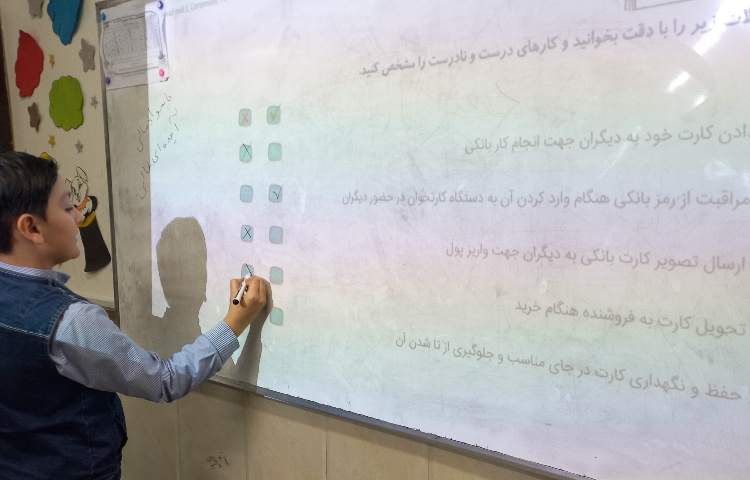 زیر را با دقت بخوانید و کارهای درست و نادرست را مشخص کنید
دادن کارت خود به دیگران جهت انجام کار بانکی
مراقبت از رمز بانکی هنگام وارد کردن آن به دستگاه کارتخوان در حضور دیگران
ارسال تصویر کارت بانکی به دیگران جهت واریز پول
تحویل کارت به فروشنده هنگام خرید
حفظ و نگهداری کارت در جای مناسب و جلوگیری از تا شدن آن